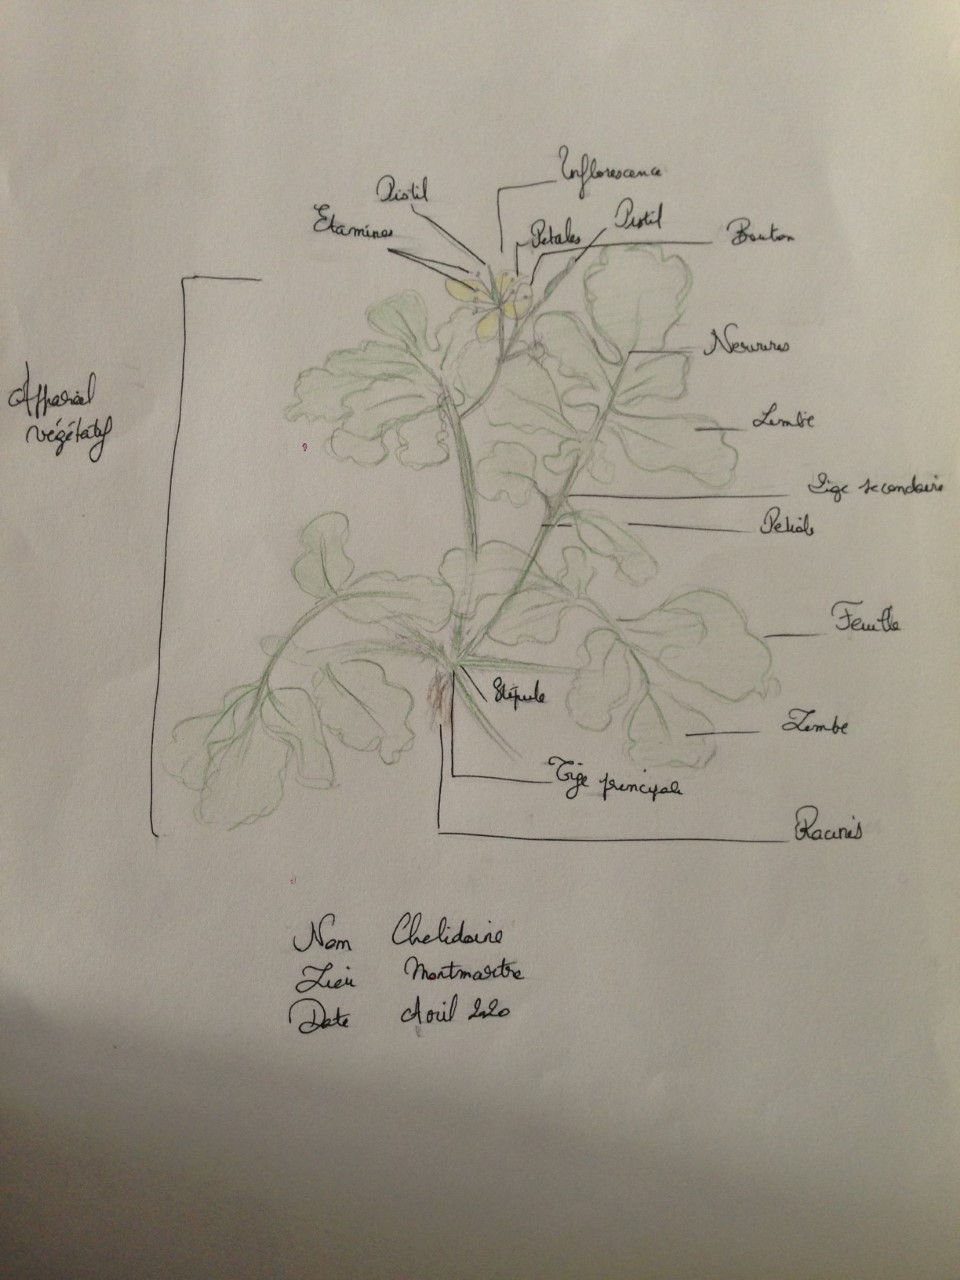 Inflorescence
Pistil
Etamines
Pétales
Pistil
Bouton
Nervures
Limbe
Appareil
végétatif
Tige secondaire
Pétiole
Feuille
Stipule
Limbe
Tige principale
Racines
Nom Chelidoine
Lieu Montmartre
Date Avril 2020